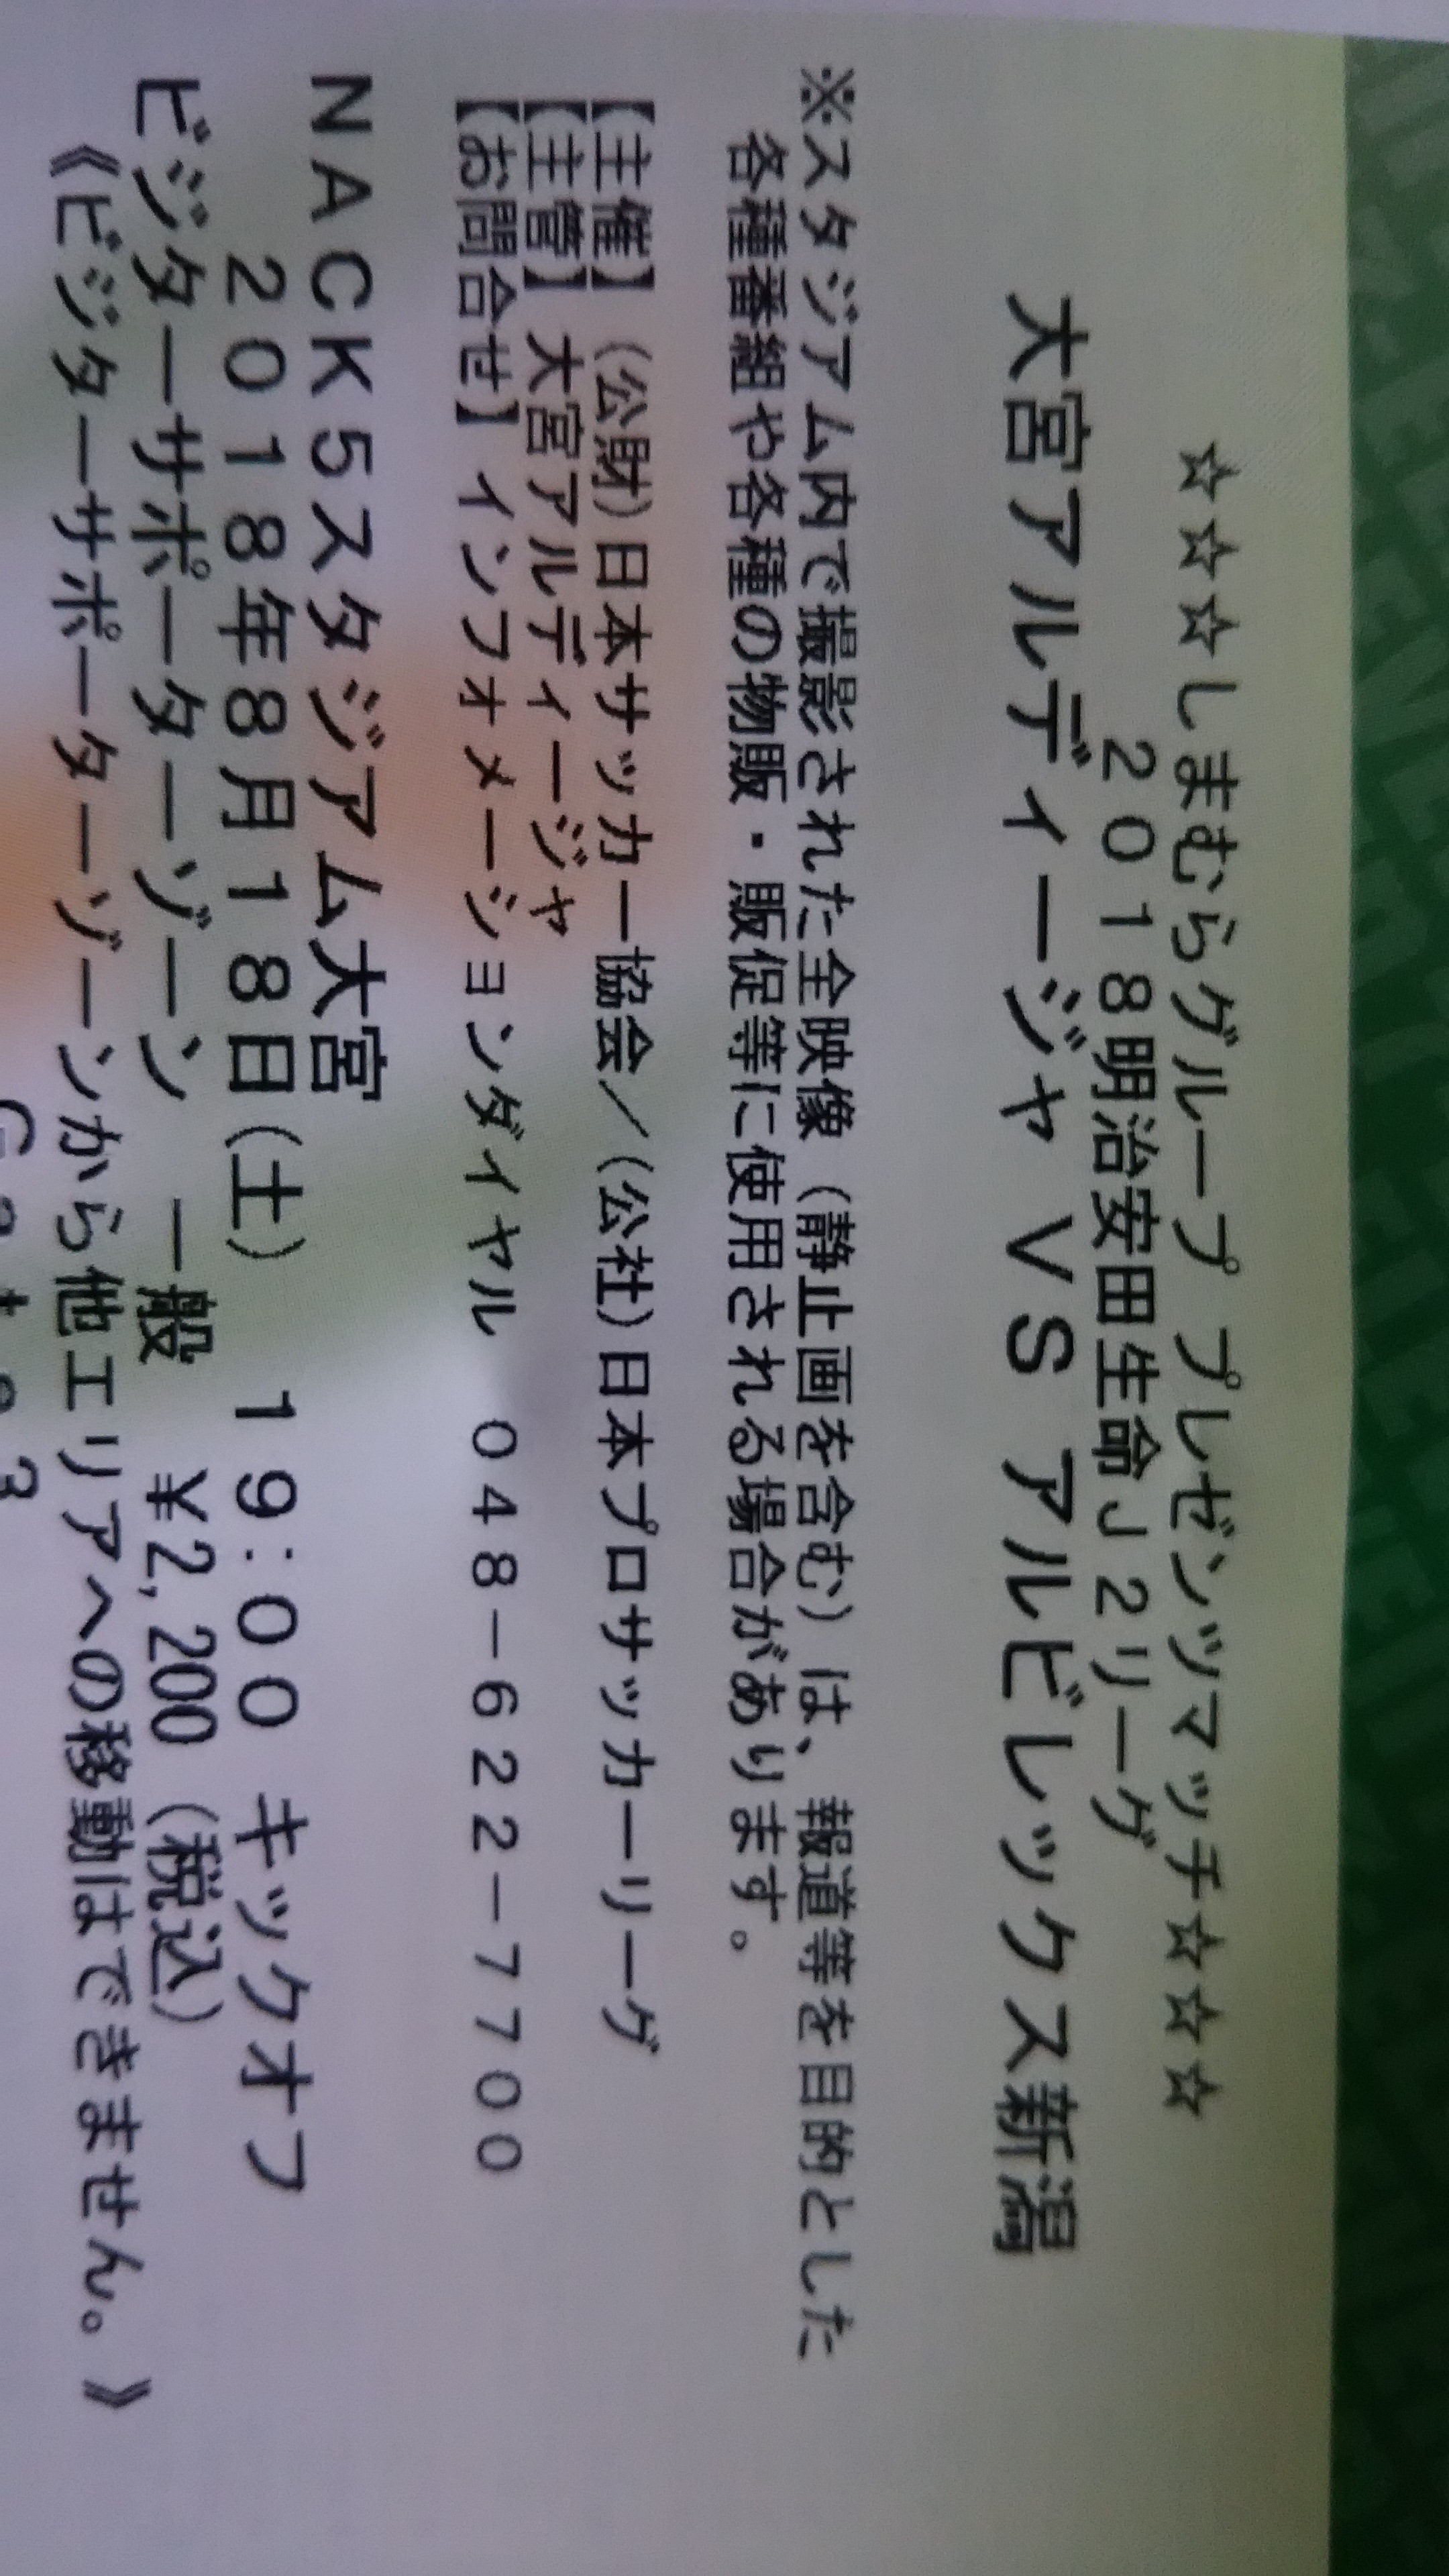 ☆☆☆しまむらグループ プレゼンツマッチ☆☆☆
２０１８明治安田生命Ｊ２リーグ
大宮アルディージャ ＶＳ アルビレックス新潟
※スタジアム内で撮影された全映像（静止画を含む）は、報道等を目的とした
各種番組や各種の物販・販促等に使用される場合があります。
【主催】（公財）日本サッカー協会／（公社）日本プロサッカーリーグ
【主管】大宮アルディージャ
【お問合せ】インフォメーションダイヤル　０４８－６２２－７７００
ＮＡＣＫ５スタジアム大宮
２０１８年８月１８日（土）　１９：００ キックオフ
ビジターサポーターゾーン　一般　¥2,200（税込）
《ビジターサポーターゾーンから他エリアへの移動はできません。》